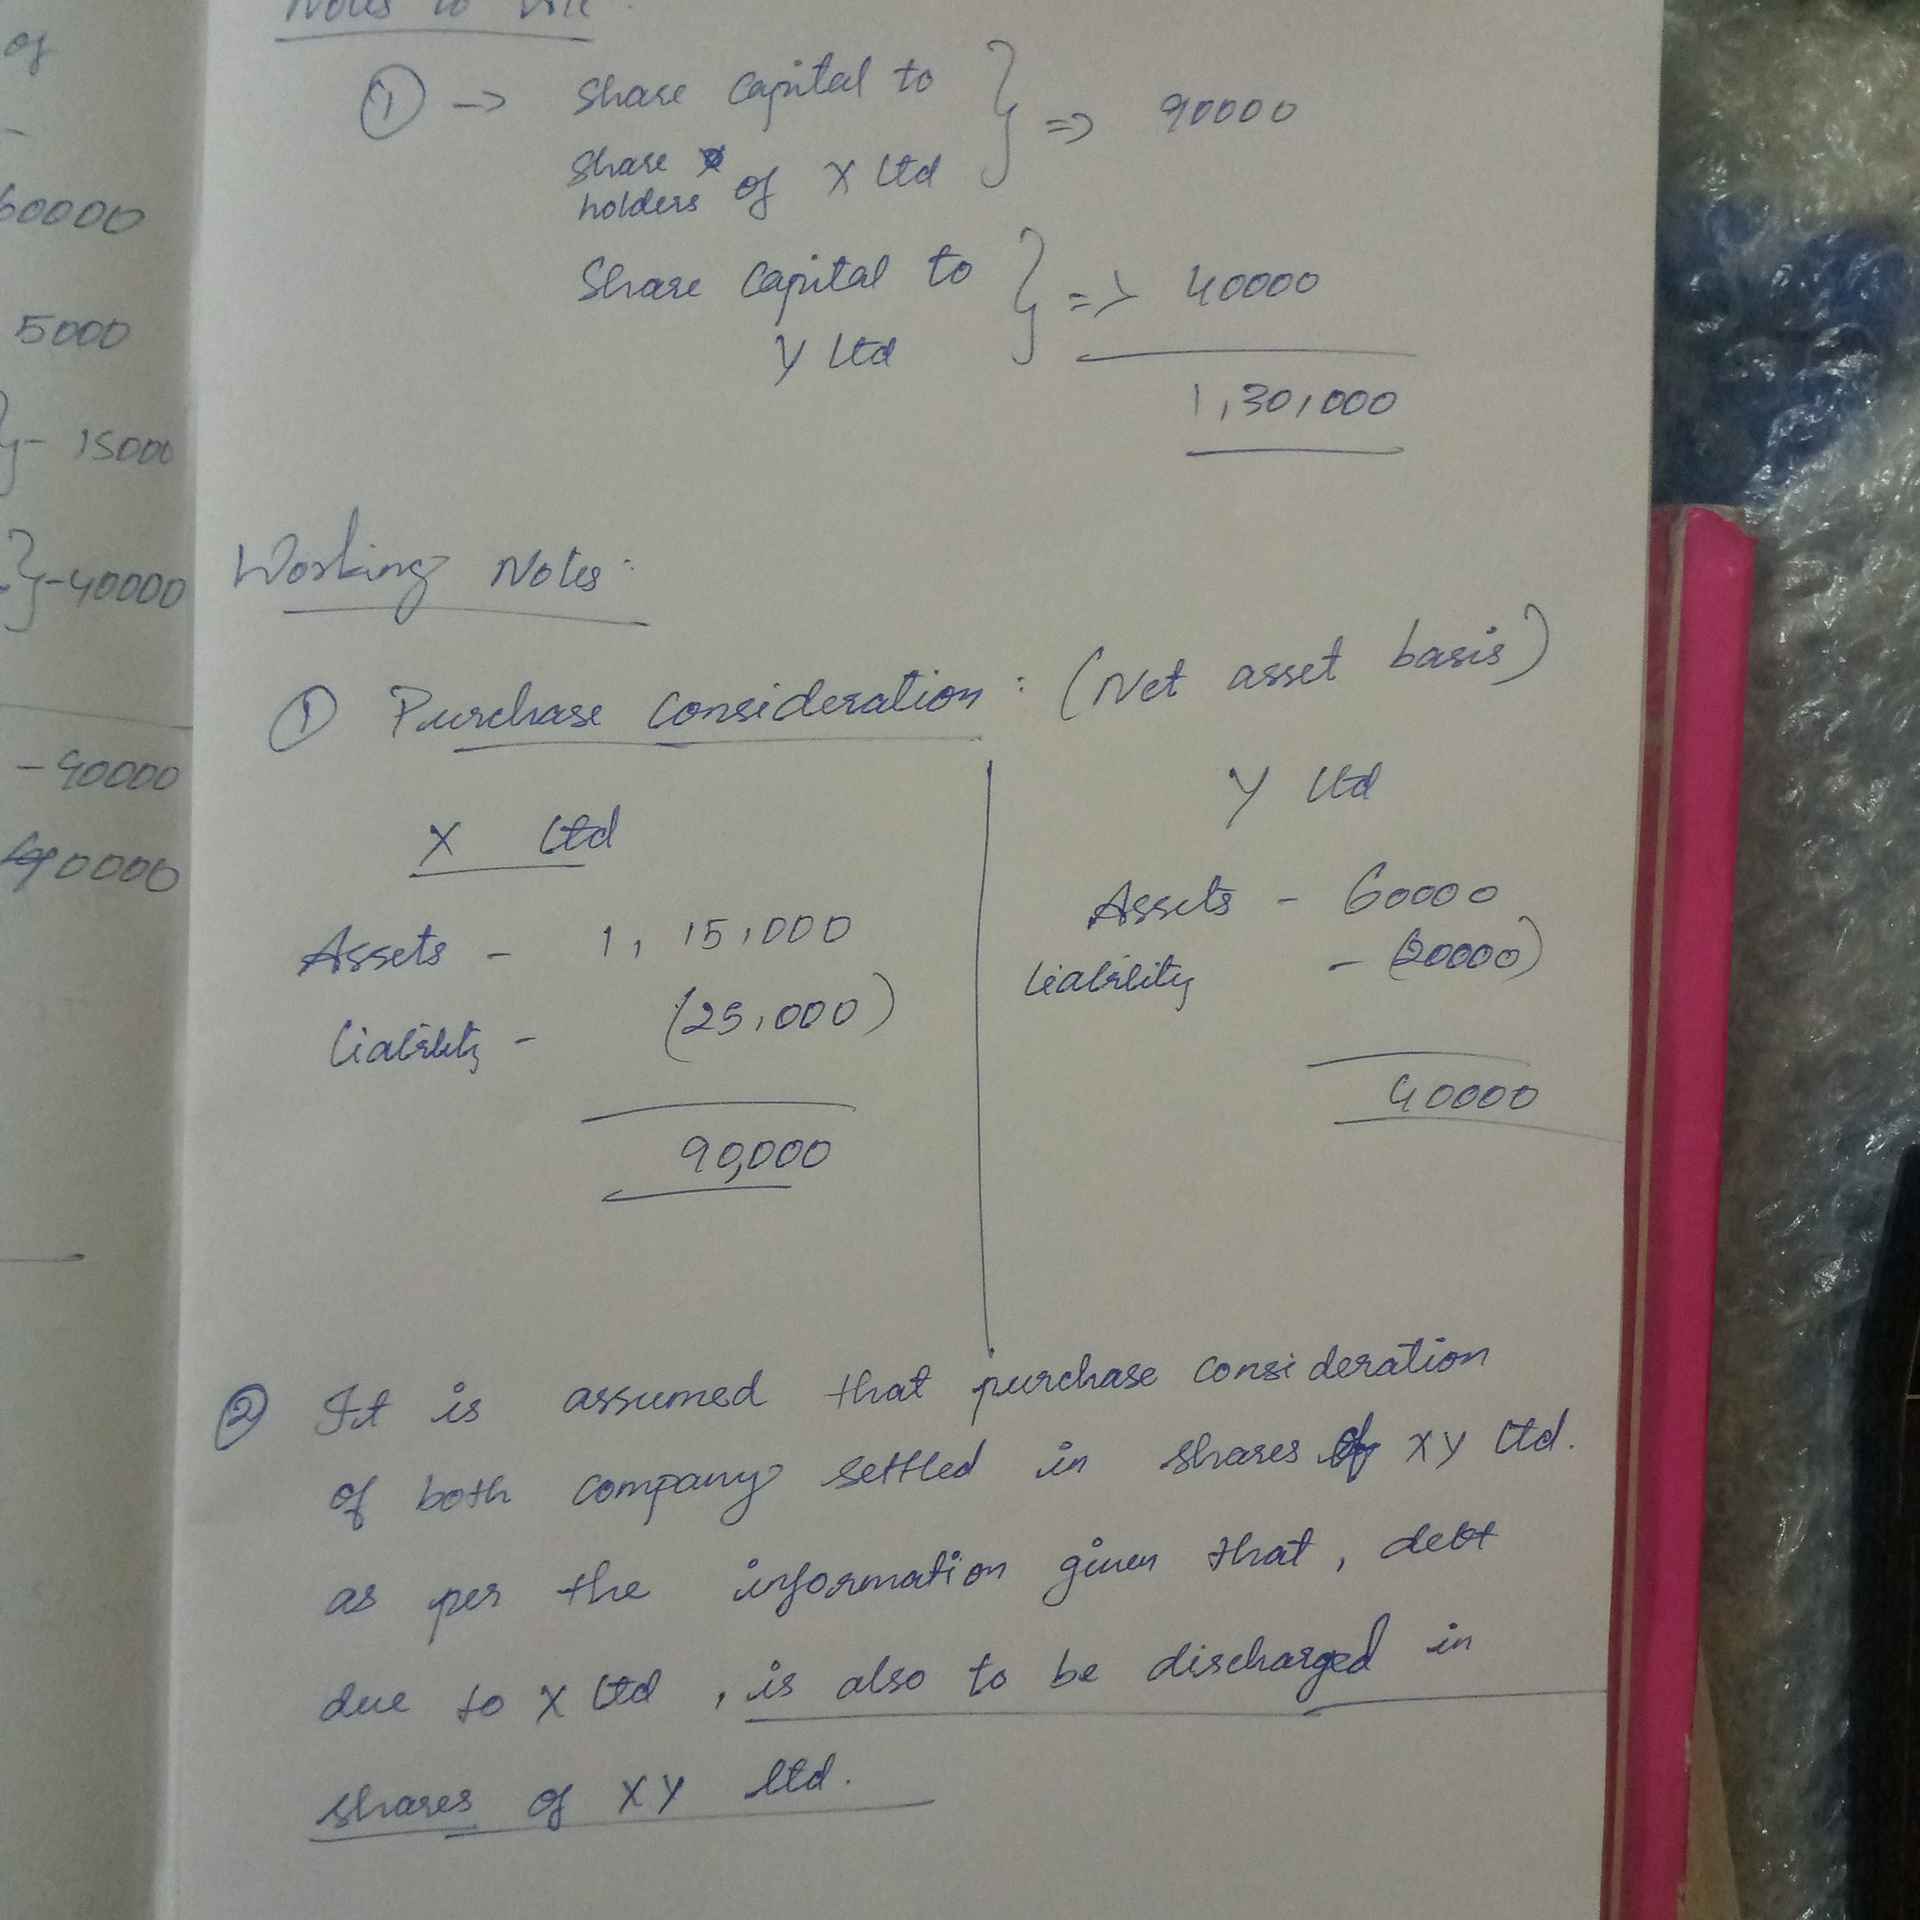 of
60000
5000
} - 15000
} - 40000
- 90000
40000
Notes to
① → Share capital to } => 90000
share
holders of X Ltd
Share capital to } => 40000
Y Ltd
1,30,000
Working Notes:
① Purchase consideration: (Net asset basis)
X Ltd
Assets - 1,15,000
Liability - (25,000)
90,000
Y Ltd
Assets - 60000
Liability - (20000)
40000
② It is assumed that purchase consideration
of both company settled in shares of XY Ltd.
as per the information given that, debt
due to X Ltd, is also to be discharged in
shares of XY Ltd.